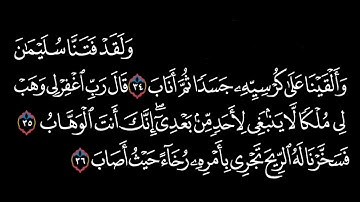 وَلَقَدْ فَتَنَّا سُلَيْمَـٰنَ
وَأَلْقَيْنَا عَلَىٰ كُرْسِيِّهِۦ جَسَدًا ثُمَّ أَنَابَ ٣٤ قَالَ رَبِّ ٱغْفِرْ لِى وَهَبْ
لِى مُلْكًا لَّا يَنۢبَغِى لِأَحَدٍ مِّنۢ بَعْدِىٓ ۖ إِنَّكَ أَنتَ ٱلْوَهَّابُ ٣٥
فَسَخَّرْنَا لَهُ ٱلرِّيحَ تَجْرِى بِأَمْرِهِۦ رُخَآءً حَيْثُ أَصَابَ ٣٦